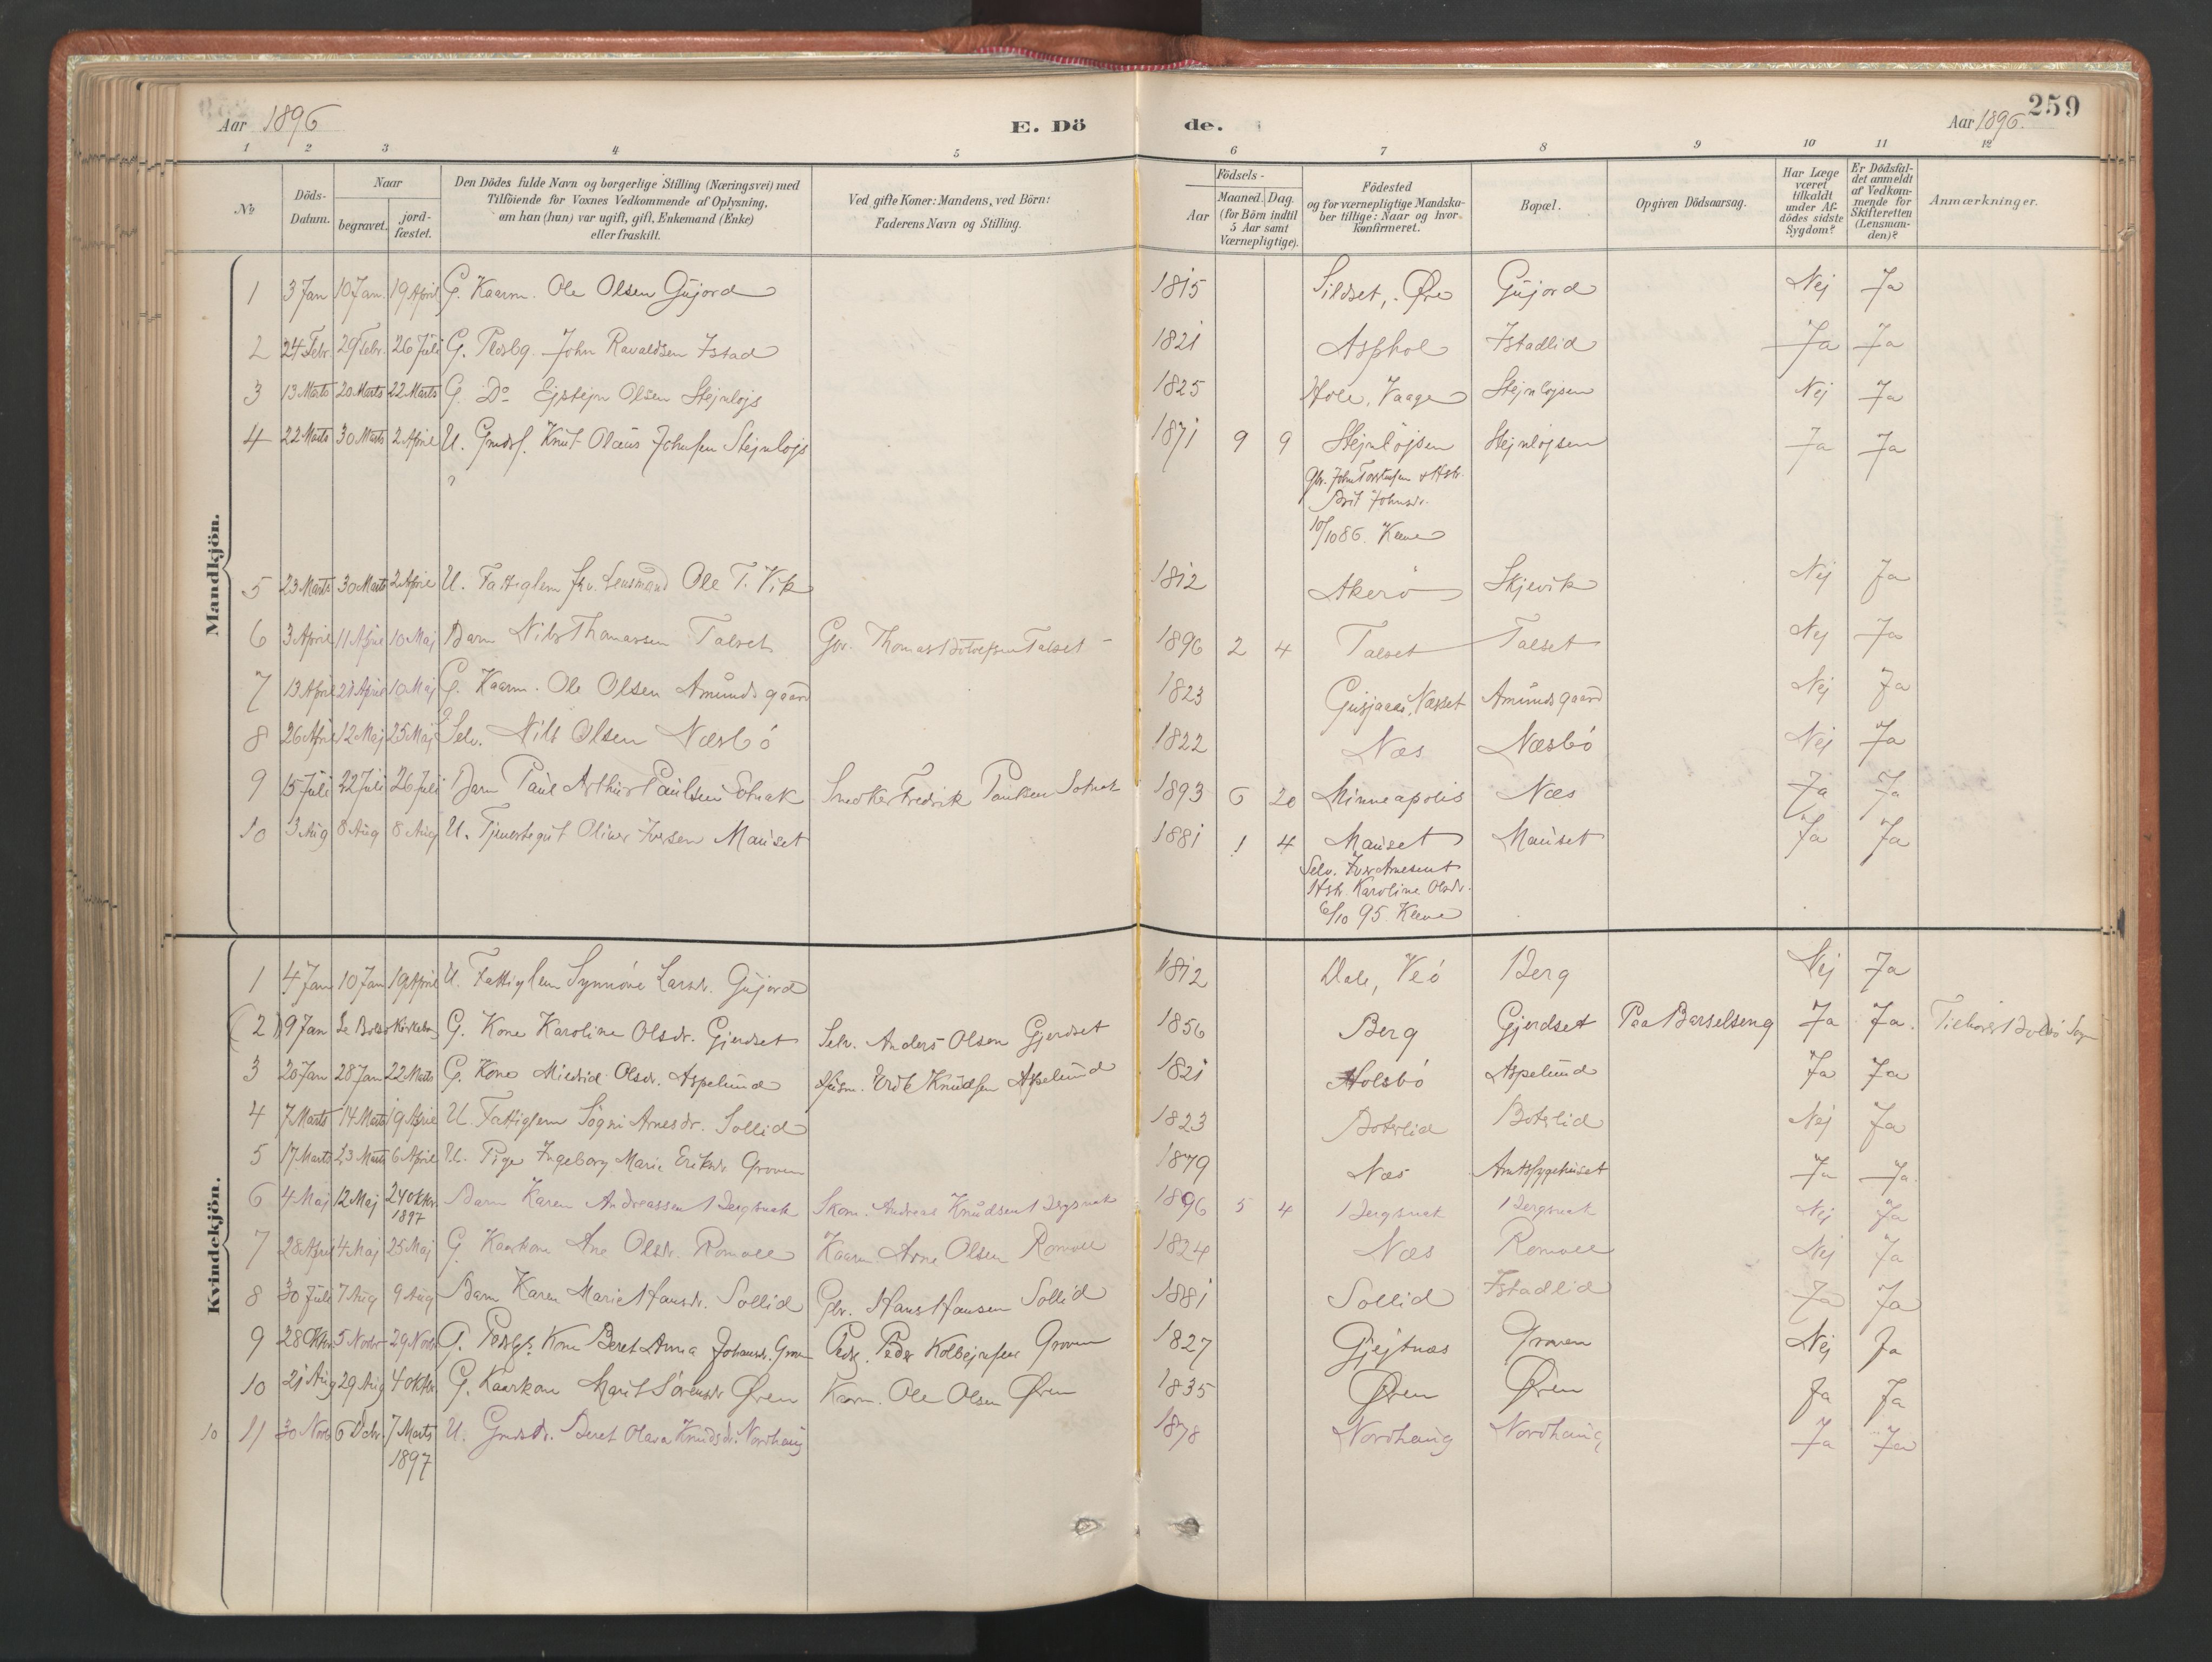 Aar 1896
E. Dö
de.
Aar 1896.
259
1 2 3 4 5 6 7 8 9 10 11 12
No
Döds-Datum.
Naar
begravet.
jordfæstet.
Den Dödes fulde Navn og borgerlige Stilling (Næringsvei) med
Tilföiende for Voxnes Vedkommende af Oplysning,
om han (hun) var ugift, gift, Enkemand (Enke)
eller fraskilt.
Ved gifte Koner: Mandens, ved Börn:
Faderens Navn og Stilling.
Födsels-
Aar
Maaned. Dag.
(for Börn indtil
5 Aar samt
Værnepligtige).
Födested
og for værnepligtige Mandska-
ber tillige: Naar og hvor
konfirmeret.
Bopæl.
Opgiven Dödsaarsag.
Har Læge
været
tilkaldt
under Af-
dödes sidste
Sygdom?
Er Dödsfal-
det anmeldt
af Vedkom-
mende for
Skifteretten
(Lensman-
den)?
Anmærkninger.
Mandkjön.
1 3 Jan 10 Jan 19 April G. Kaarm. Ole Olsen Gujord 1815 Sildset, Øre Gujord Nej Ja
2 24 Febr. 29 Febr. 26 Juli G. Plosbg. John Ravaldsen Istad 1821 Asphol Istadlid Ja Ja
3 13 Marts 20 Marts 22 Marts G. Do Ejstejn Olsen Stejnløjs 1825 Hole, Vaage Stejnløjsen Nej Ja
4 22 Marts 30 Marts 2 April U. Gmdsf. Knut Olaus Johnsen Stejnløjs 1871 9 9 Stejnløjsen Stejnløjsen Ja Ja
Gbr. John Torstensen & Hstr.
Brit Johnsdr.
10/10 86. Kleve
5 23 Marts 30 Marts 2 April U. Fattiglem frv. Lensmand Ole T. Vik 1812 Akerö Skjevik Nej Ja
6 3 April 11 April 10 Maj Barn Nils Thomassen Talset Gbr. Thomas Talset 1896 2 4 Talset Talset Nej Ja
7 13 April 21 April 10 Maj G. Kaarm. Ole Olsen Amundsgaard 1823 Gusjaas, Næsset Amundsgaard Nej Ja
8 26 April 12 Maj 25 Maj G Selv. Nils Olsen Næsbö 1822 Næs Næsbö Nej Ja
9 15 Juli 22 Juli 26 Juli Barn Paul Arthur Paulsen Solnak Snedker Fredrik Paulsen Solnak 1893 6 20 Minneapolis Næs Ja Ja
10 3 Aug 8 Aug 8 Aug U. Tjenestegut Oliver Iversen Mauset 1881 1 4 Mauset Mauset Ja Ja
Selv. Iver Arnesen &
Hstr. Karoline Olsdr.
6/10 95. Kleve
Kvindekjön.
1 4 Jan 10 Jan 19 April U. Fattiglem Synnöve Larsdr. Gujord 1812 Dale, Veö Berg Nej Ja
(2) 9 Jan Se Bolsö Kirkebog G. Kone Karoline Olsdr. Gjerdset Selv. Anders Olsen Gjerdset 1856 Berg Gjerdset Paa Barselseng Ja Ja. Tilhører Bolsö Sogn
3 20 Jan 28 Jan 22 Marts G. Kone Mildrid Olsdr. Aspelund Husm. Erik Knudsen Aspelund 1821 Holsbö Aspelund Ja Ja
4 7 Marts 14 Marts 19 April U. Fattiglem Sögni Arnesdr. Sollid 1823 Boterlid Boterlid Nej Ja
5 17 Marts 23 Marts 6 April U. Pige Ingeborg Marie Eriksdr. Groven 1879 Næs Amtssygehuset Ja Ja.
6 4 Maj 12 Maj 24 Oktbr. 1897 Barn Karen Andreassen Bergsnak Skom. Andreas Knudsen Bergsnak 1896 5 4 Bergsnak Bergsnak Nej Ja
7 28 April 4 Maj 25 Maj G. Kaarkone Ane Olsdr. Romvel Kaarm. Arne Olsen Romvel 1824 Næs Romvel Nej Ja
8 30 Juli 7 Aug 9 Aug Barn Karen Marie Hansdr. Sollid Gbr. Hans Hansen Sollid 1881 Sollid Istadlid Ja Ja
9 28 Oktbr 5 Novbr 29 Novbr G. Plosbgs. Kone Beret Anna Johansdr. Groven Plosbg. Peder Kolbejnsen Groven 1827 Gjejtnæs Groven Nej Ja
10 21 Aug 29 Aug 4 Oktbr G. Kaarkone Marit Sörensdr Øren Kaarm. Ole Olsen Øren 1835 Øren Øren Ja Ja
10 11 30 Novb 6 Dcbr. 7 Marts 1897 U. Gmdsdr. Beret Olava Knudsdr. Nordhaug 1878 Nordhaug Nordhaug Ja Ja